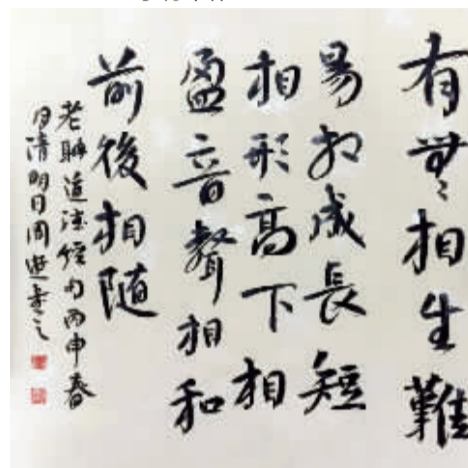 有無相生難
易相成長短
相形高下相
盈音聲相和
前後相随
老聃道德經句丙申春
月清明日周遊書之